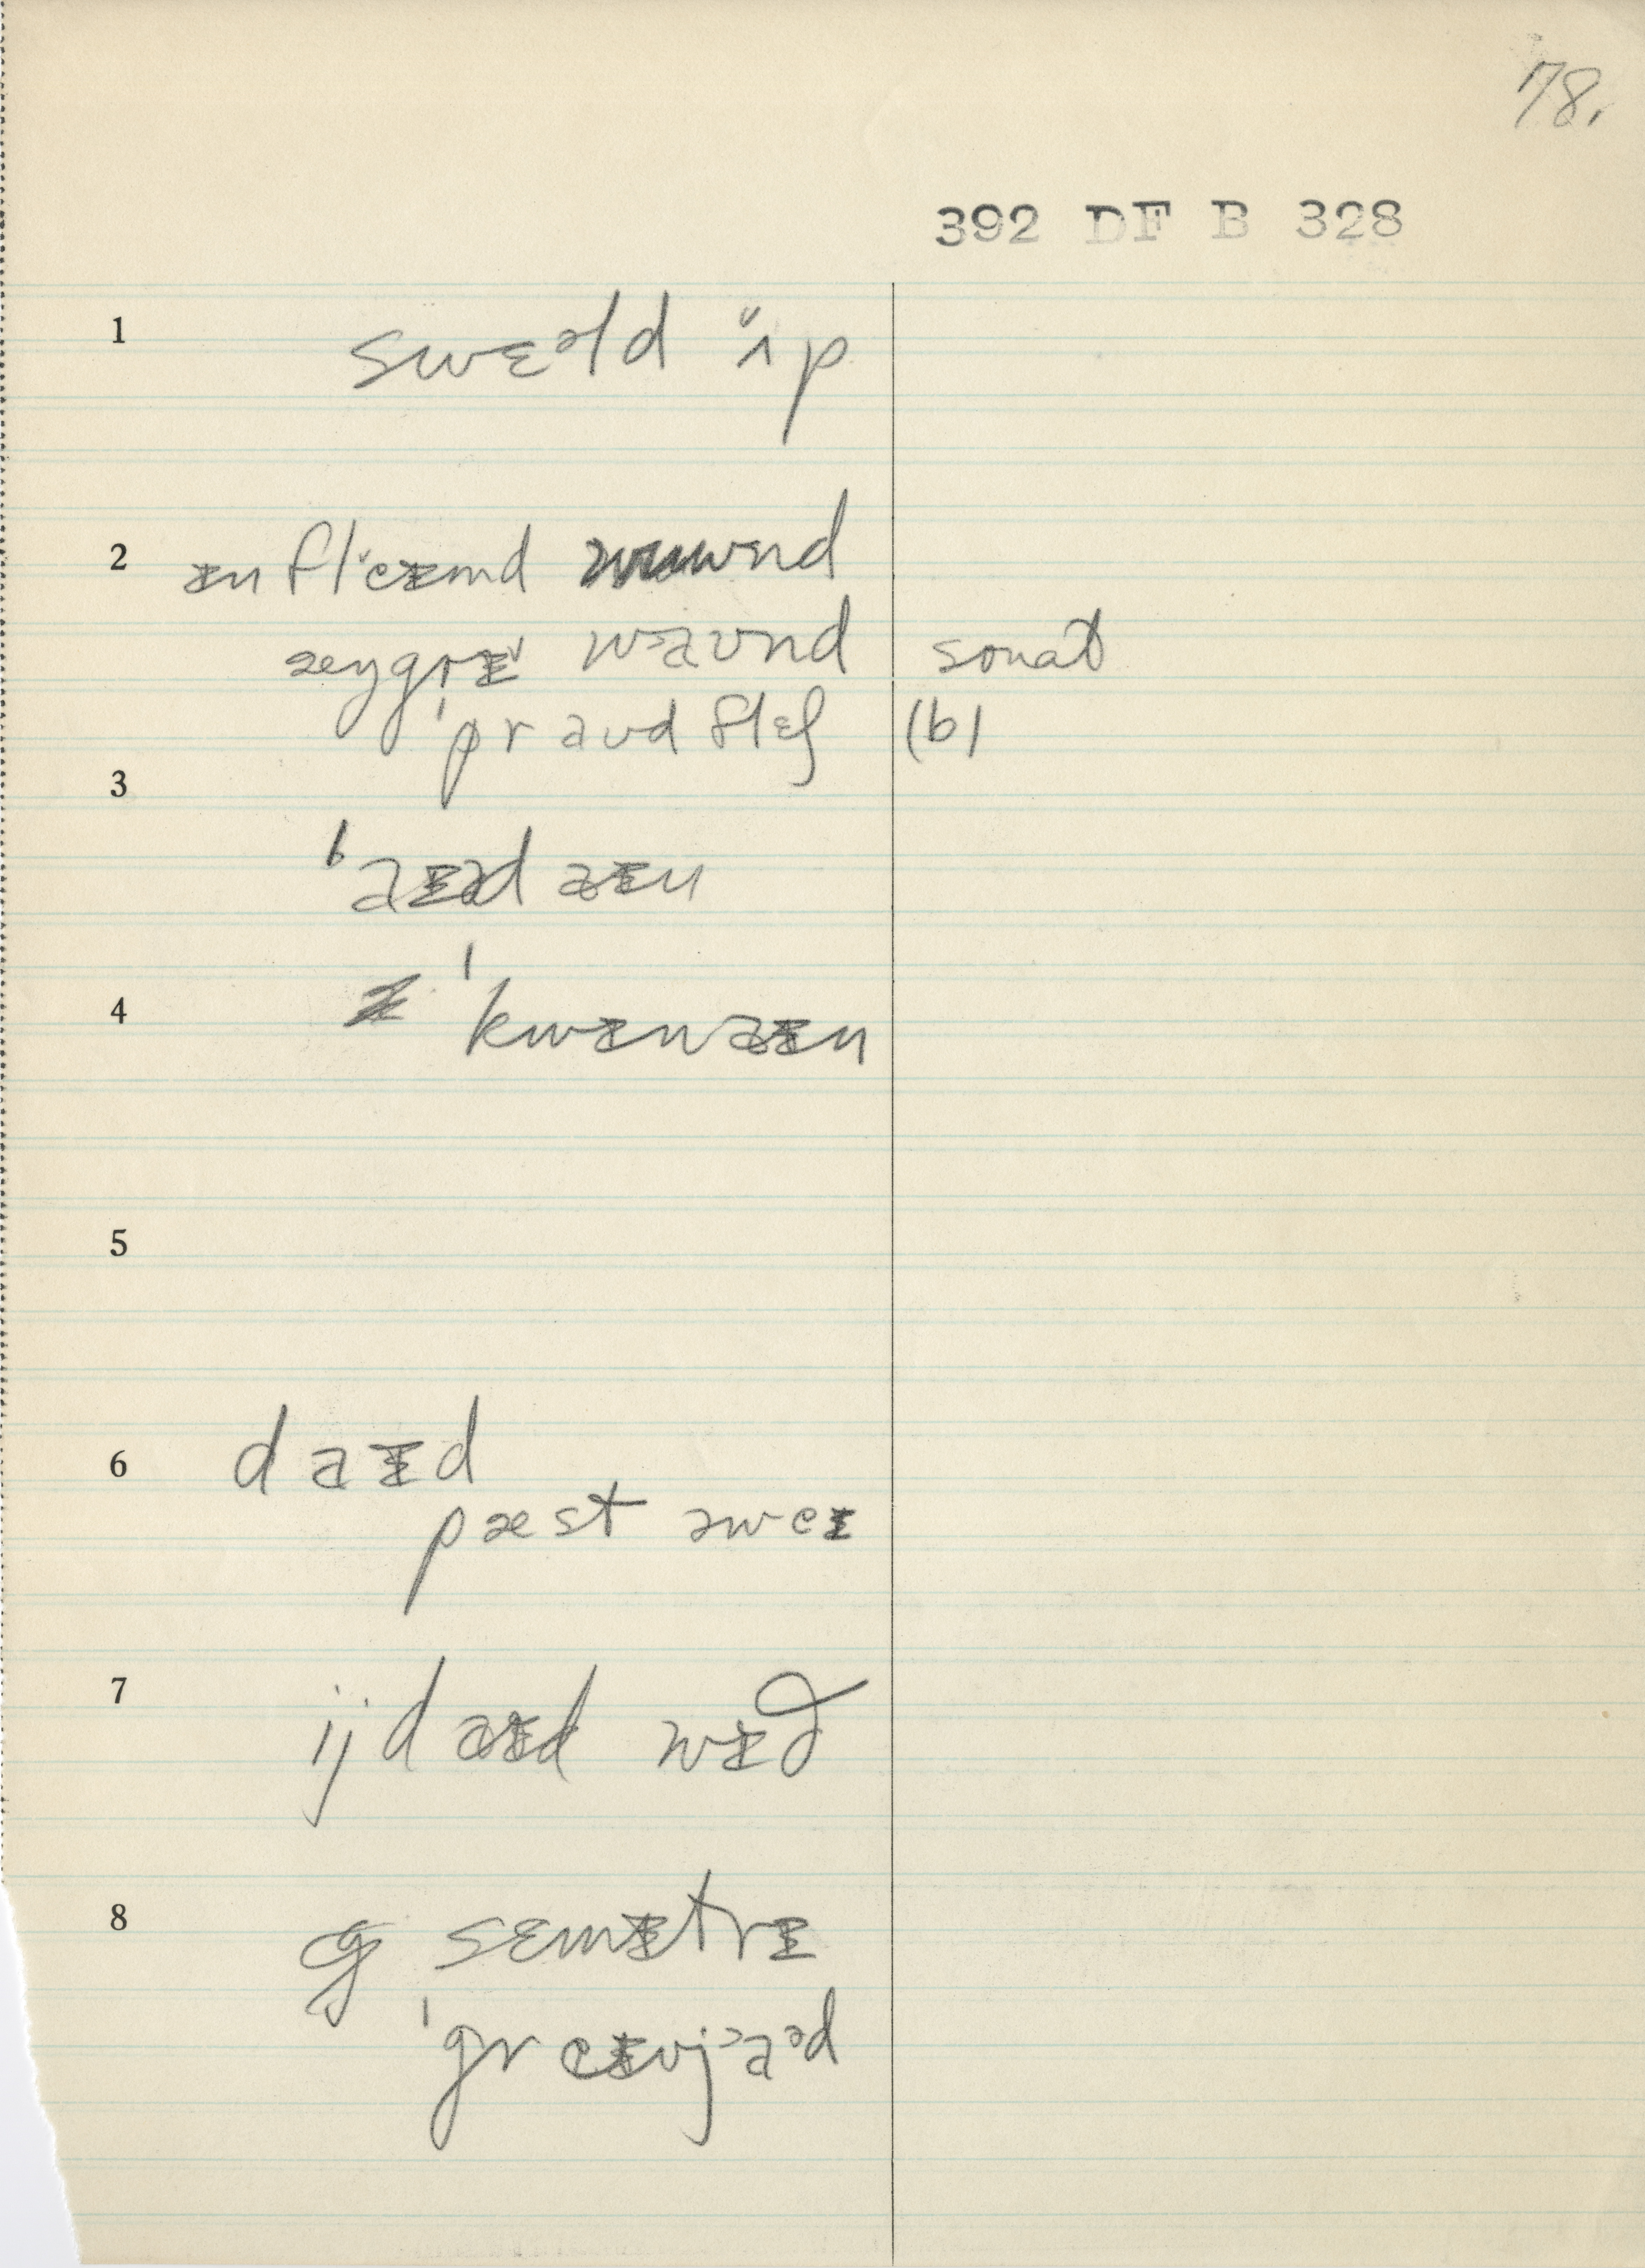 78.
392 DF B 328
1 swɛəld ʌ̆p
2 ɪn fl ̆eɪmd
æŋgrɪ ̆ wəaʊnd sonat
ˈpraʊd flɛʃ (b)
3
ˈaɪədaɪn
4 ˈkwɪnaɪn
5
6 daɪd
pæst əweɪ
7 ijdaɪd wɪð
8 sɛmɪtrɪ
ˈgreɪvjəaəd